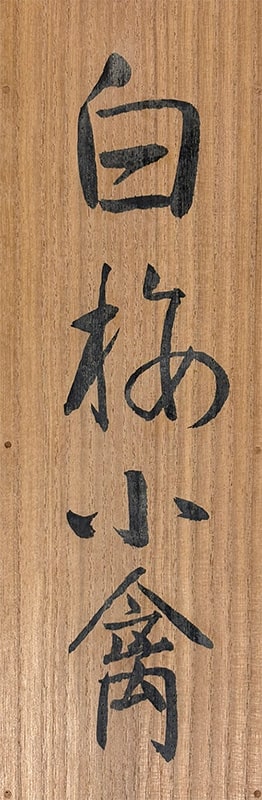 白梅小禽